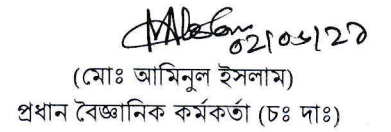 (মোঃ আমিনুল ইসলাম)
প্রধান বৈজ্ঞানিক কর্মকর্তা (চঃ দাঃ)